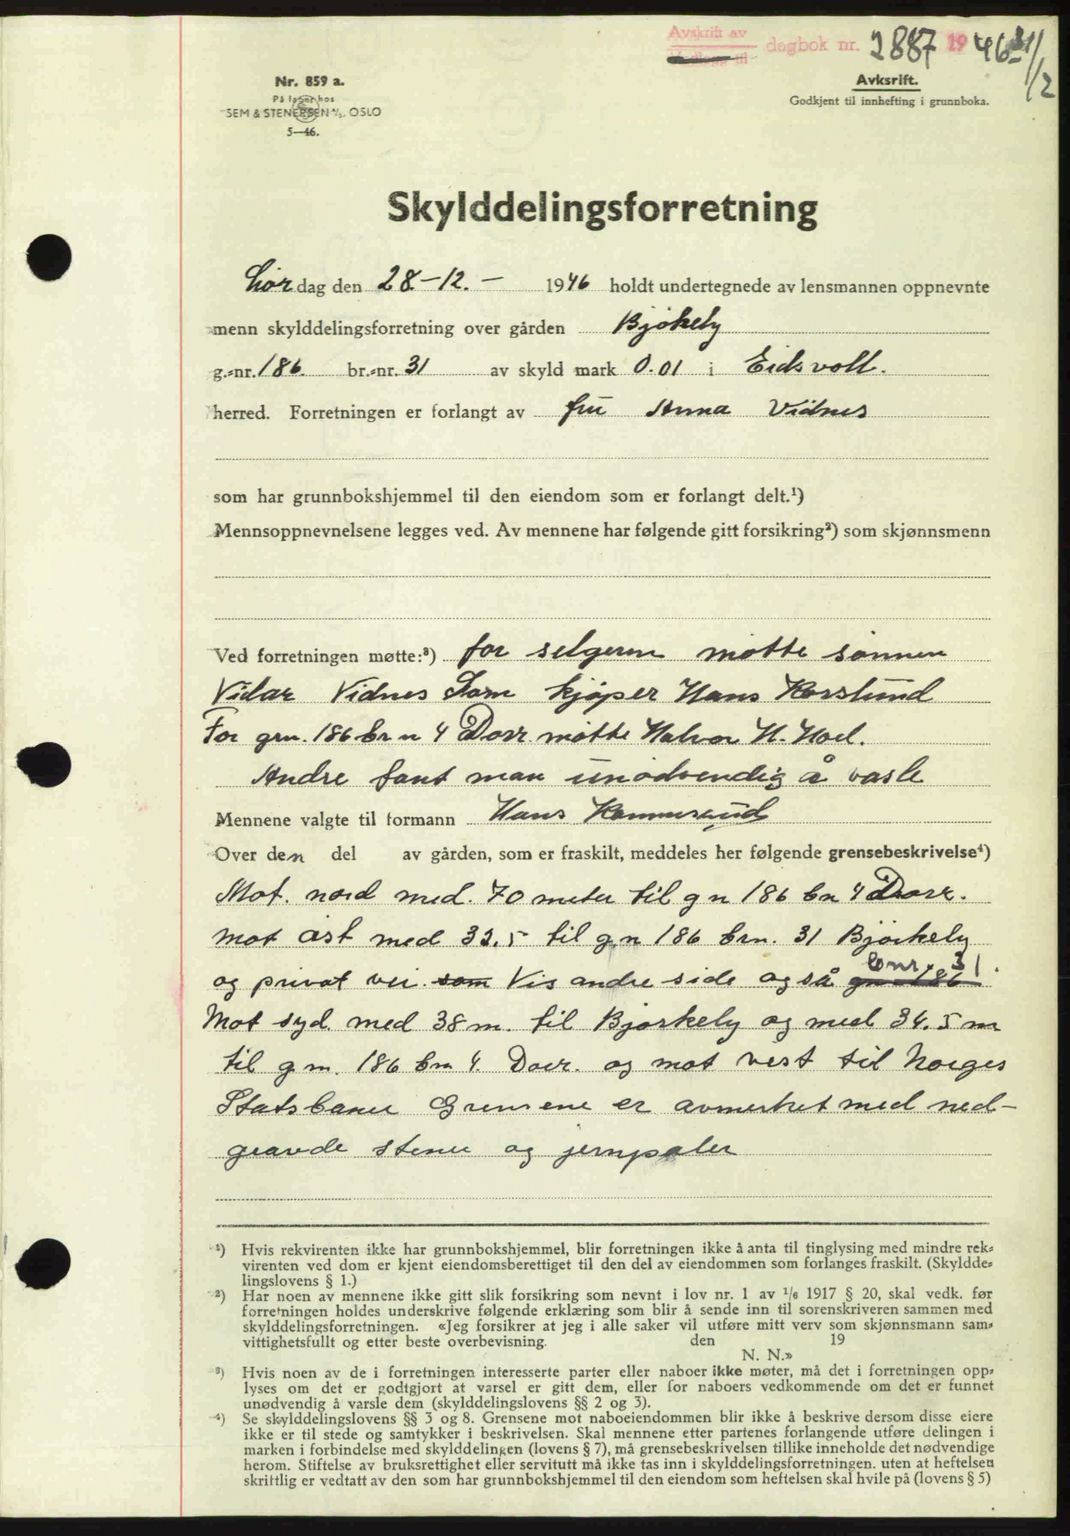 Avskrift av dagbok nr. 2887 1946 31/12
Nr. 859 a.
På lager hos
SEM & STENERSEN A/S. OSLO
5—46.
Avksrift.
Godkjent til innhefting i grunnboka.
Skylddelingsforretning
Lørdag den 28-12.- 1946 holdt undertegnede av lensmannen oppnevnte
menn skylddelingsforretning over gården Bjøkely
g.=nr. 186. br.=nr. 31 av skyld mark 0.01 i Eidsvoll.
herred. Forretningen er forlangt av fru Anna Vidnes
som har grunnbokshjemmel til den eiendom som er forlangt delt.¹)
Mennsoppnevnelsene legges ved. Av mennene har følgende gitt forsikring²) som skjønnsmenn
Ved forretningen møtte:³) for selgeren møtte sønnen
Vidar Vidnes Som kjøper Hans Korslund
For grn. 186 br n 4 Dorr møtte Halvor H. Hoel.
Andre fant man unødvendig å vasle
Mennene valgte til formann Hans
Over den del av gården, som er fraskilt, meddeles her følgende grensebeskrivelse⁴)
Mot. nord med. 70 meter til g n 186 bn 4 Dorr.
mot øst med 32.5 til g.n 186 brn. 31 Bjørkely
og privat vei som Vis andre side også bnr. 31.
Mot syd med 38 m. til Bjørkely og med 34.5 m
til g n. 186 bn 4. Dorr. og mot vest til Norges
Statsbaner Grensene er avmerket med ned-
gravde stener og jernpåler
¹) Hvis rekvirenten ikke har grunnbokshjemmel, blir forretningen ikke å anta til tinglysing med mindre rek=
virenten ved dom er kjent eiendomsberettiget til den del av eiendommen som forlanges fraskilt. (Skyldde=
lingslovens § 1.)
²) Har noen av mennene ikke gitt slik forsikring som nevnt i lov nr. 1 av 1/6 1917 § 20, skal vedk. før
forretningen holdes underskrive følgende erklæring som blir å sende inn til sorenskriveren sammen med
skylddelingsforretningen. «Jeg forsikrer at jeg i alle saker vil utføre mitt verv som skjønnsmann sam=
vittighetsfullt og etter beste overbevisning. den 19
N. N.»
³) Hvis noen av de i forretningen interesserte parter eller naboer ikke møter, må det i forretningen opp=
lyses om det er godtgjort at varsel er gitt dem, eller for naboers vedkommende om det er funnet
unødvendig å varsle dem (skylddelingslovens §§ 2 og 3).
⁴) Se skylddelingslovens §§ 3 og 8. Grensene mot naboeiendommen blir ikke å beskrive dersom disse eiere
ikke er til stede og samtykker i beskrivelsen. Skal mennene etter partenes forlangende utføre delingen i
marken i forbindelse med skylddelingen (lovens § 7), må grensebeskrivelsen tillike inneholde det nødvendige
herom. Stiftelse av bruksrettighet eller servitutt må ikke tas inn i skylddelingsforretningen. uten at heftelsen
skriftlig er vedtatt av den som har grunnbokshjemmel til den eiendom som heftelsen skal hvile på (lovens § 5)